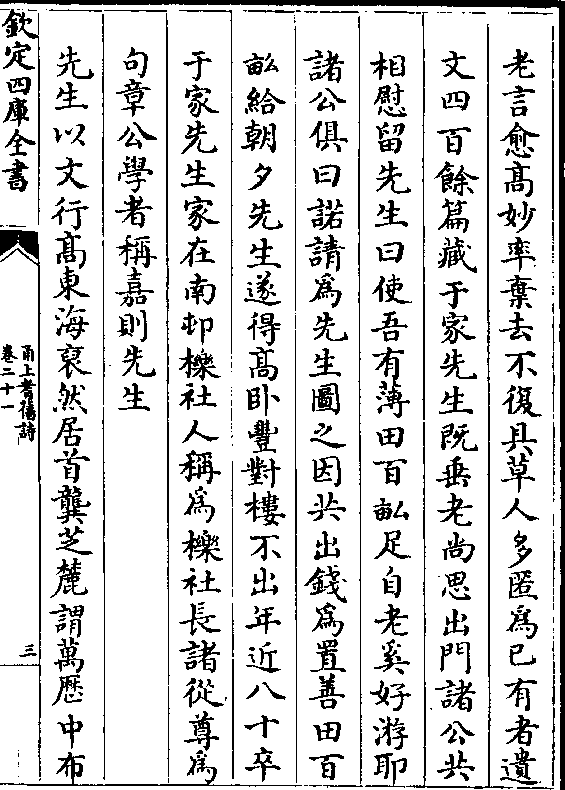 老言愈髙妙率棄去不復具草人多匿為已有者遺
文四百餘篇藏于家先生既垂老尚思出門諸公共
相慰留先生曰使吾有薄田百畝足自老奚好游耶
諸公俱曰諾請為先生圖之因共出錢為置善田百
畝給朝夕先生遂得髙卧豐對樓不出年近八十卒
于家先生家在南邨櫟社人稱為櫟社長諸從尊為
句章公學者稱嘉則先生
先生以文行髙東海裒然居首龔芝麓謂萬歴中布
欽定四庫全書
甬上耆舊詩
卷二十一
三